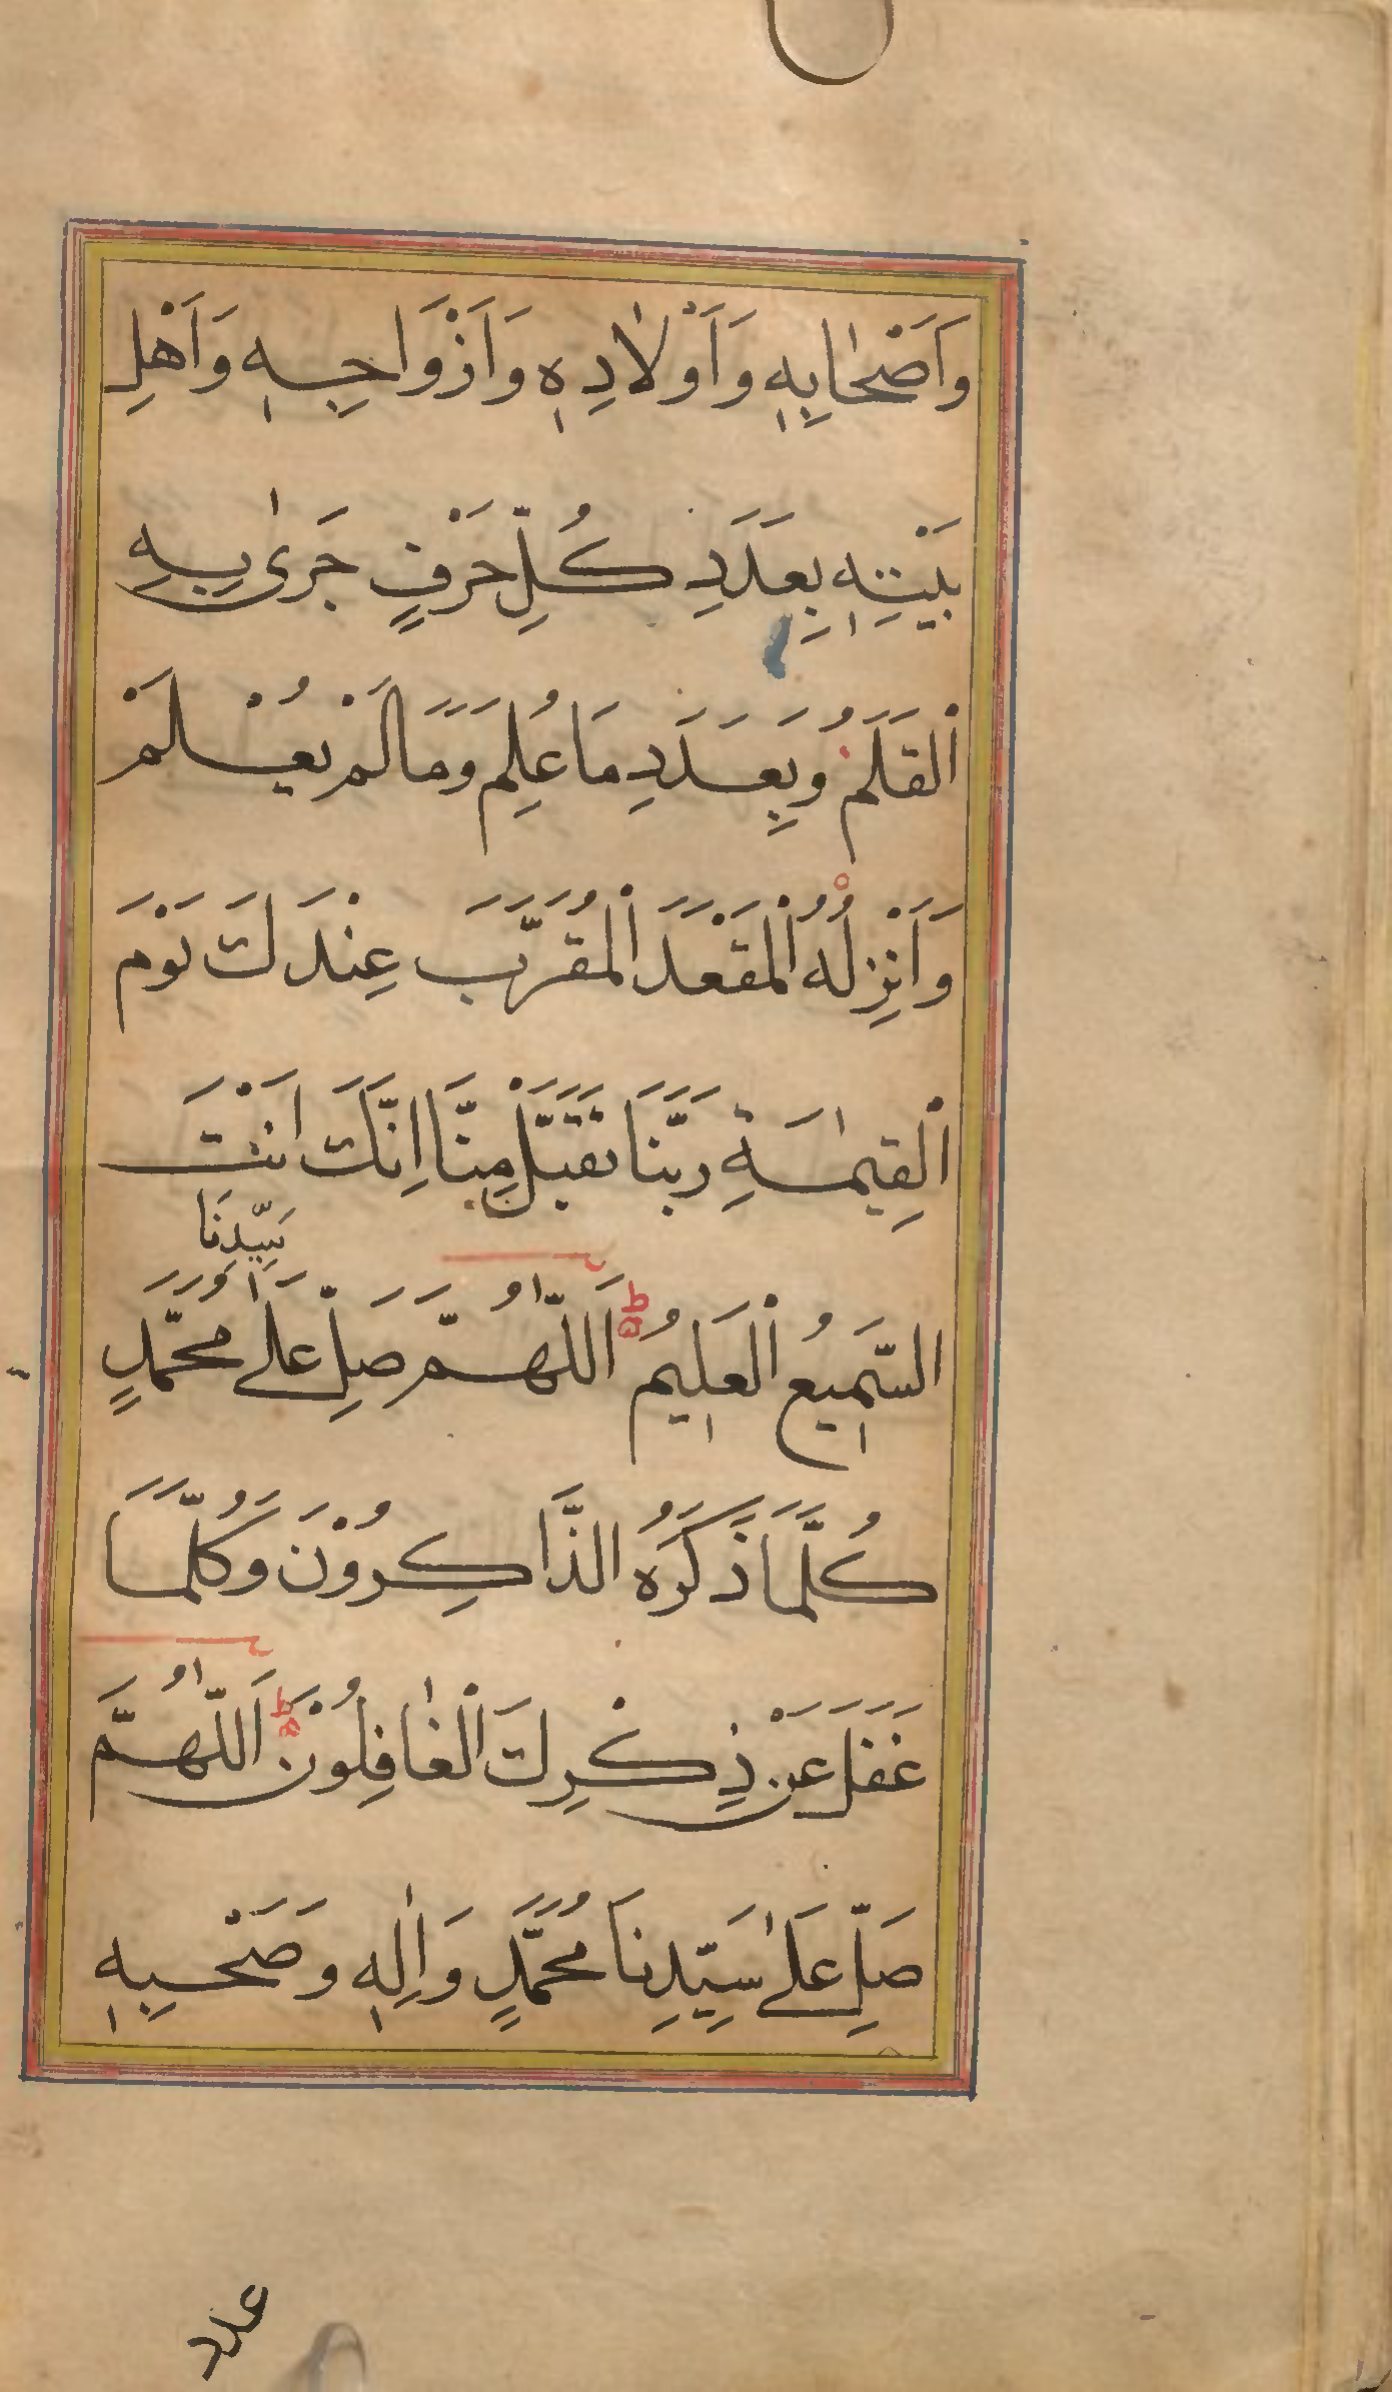 وَاَصْحٰابِهٖ وَاَوْلٰادِهٖ وَاَزْوَاجِهٖ وَاَهْلِ
بَيْتِهٖ بِعَدَدِ كُلِّ حَرْفٍ جَرٰى بِهِ
الْقَلَمُ وَبِعَدَدِ مَا عُلِمَ وَمَا لَمْ يُعْلَمْ
وَاَنْزِلْهُ الْمَقْعَدَ الْمُقَرَّبَ عِنْدَكَ يَوْمَ
الْقِيٰمَةِ رَبَّنَا تَقَبَّلْ مِنَّا اِنَّكَ اَنْتَ
سَيِّدِنَا
السَّمٖيعُ الْعَلٖيمُ اَللّٰهُمَّ صَلِّ عَلٰى مُحَمَّدٍ
كُلَّمَا ذَكَرَهُ الذَّاكِرُوْنَ وَكُلَّمَا
غَفَلَ عَنْ ذِكْرِكَ الْغٰافِلُوْنَ اَللّٰهُمَّ
صَلِّ عَلٰى سَيِّدِنَا مُحَمَّدٍ وَاٰلِهٖ وَصَحْبِهٖ
عدد